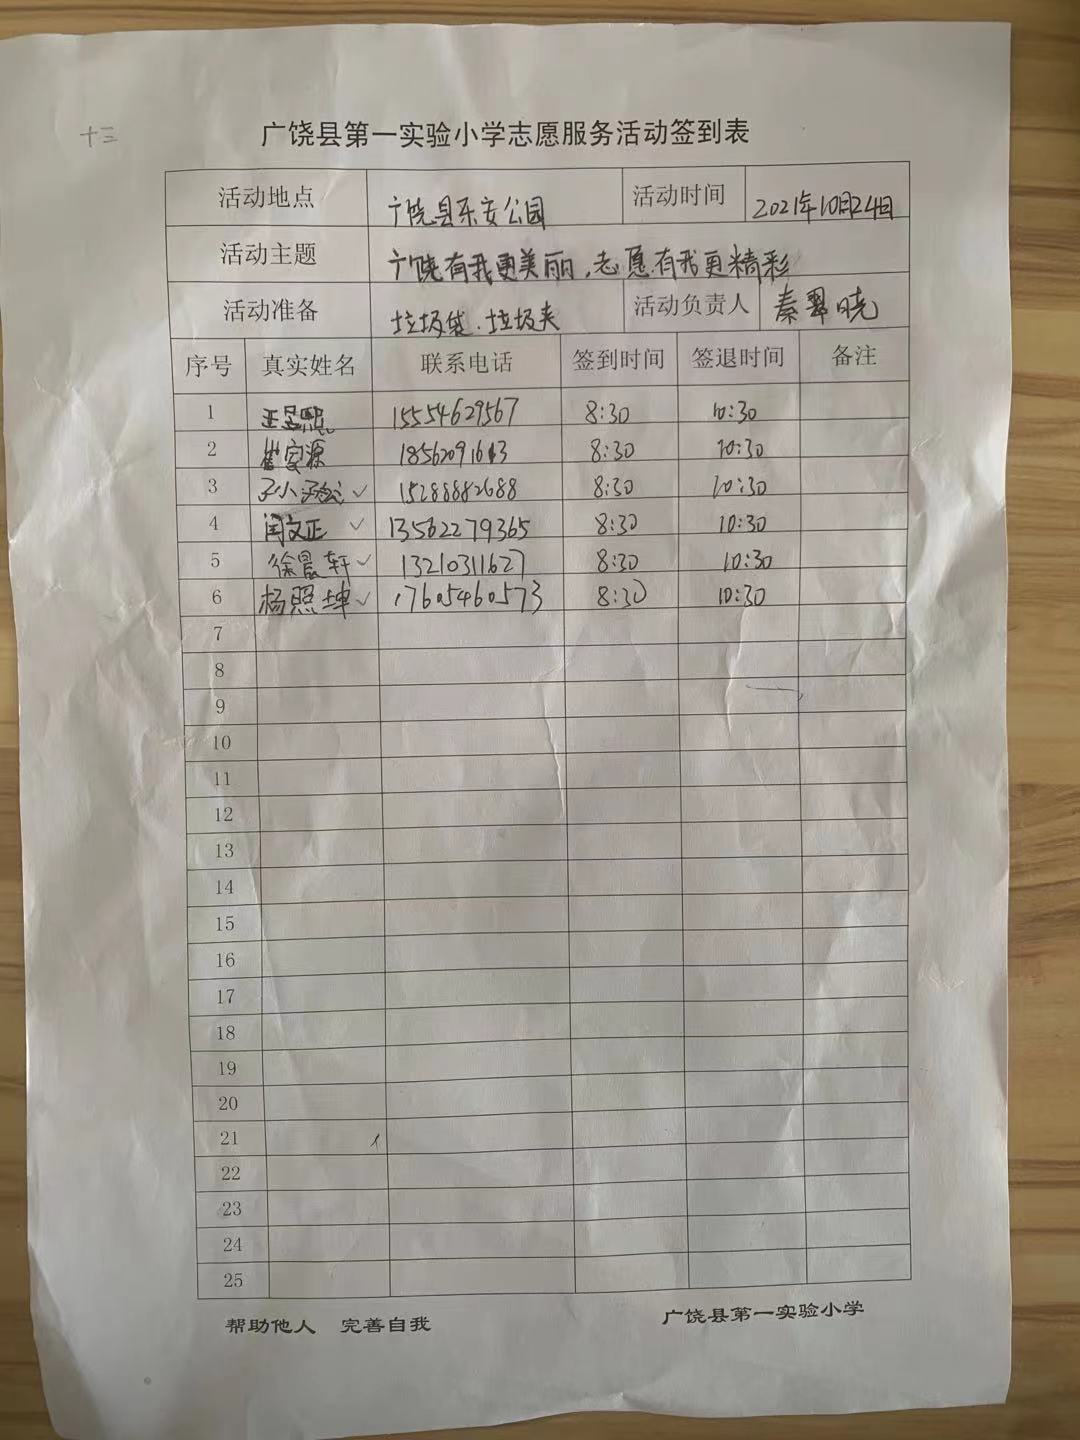 十三
广饶县第一实验小学志愿服务活动签到表
活动地点 广饶县乐安公园 活动时间 2021年10月24日
活动主题 广饶有我更美丽，志愿有我更精彩
活动准备 垃圾袋、垃圾夹 活动负责人 秦翠晓
序号 真实姓名 联系电话 签到时间 签退时间 备注
1 15554629567 8:30 10:30
2 崔家源 8:30 10:30
3 15288882688 8:30 10:30
4 闫文正 ✓ 13562279365 8:30 10:30
5 徐晨轩 ✓ 13210311627 8:30 10:30
6 杨照坤 ✓ 17605460573 8:30 10:30
7
8
9
10
11
12
13
14
15
16
17
18
19
20
21
22
23
24
25
帮助他人 完善自我 广饶县第一实验小学